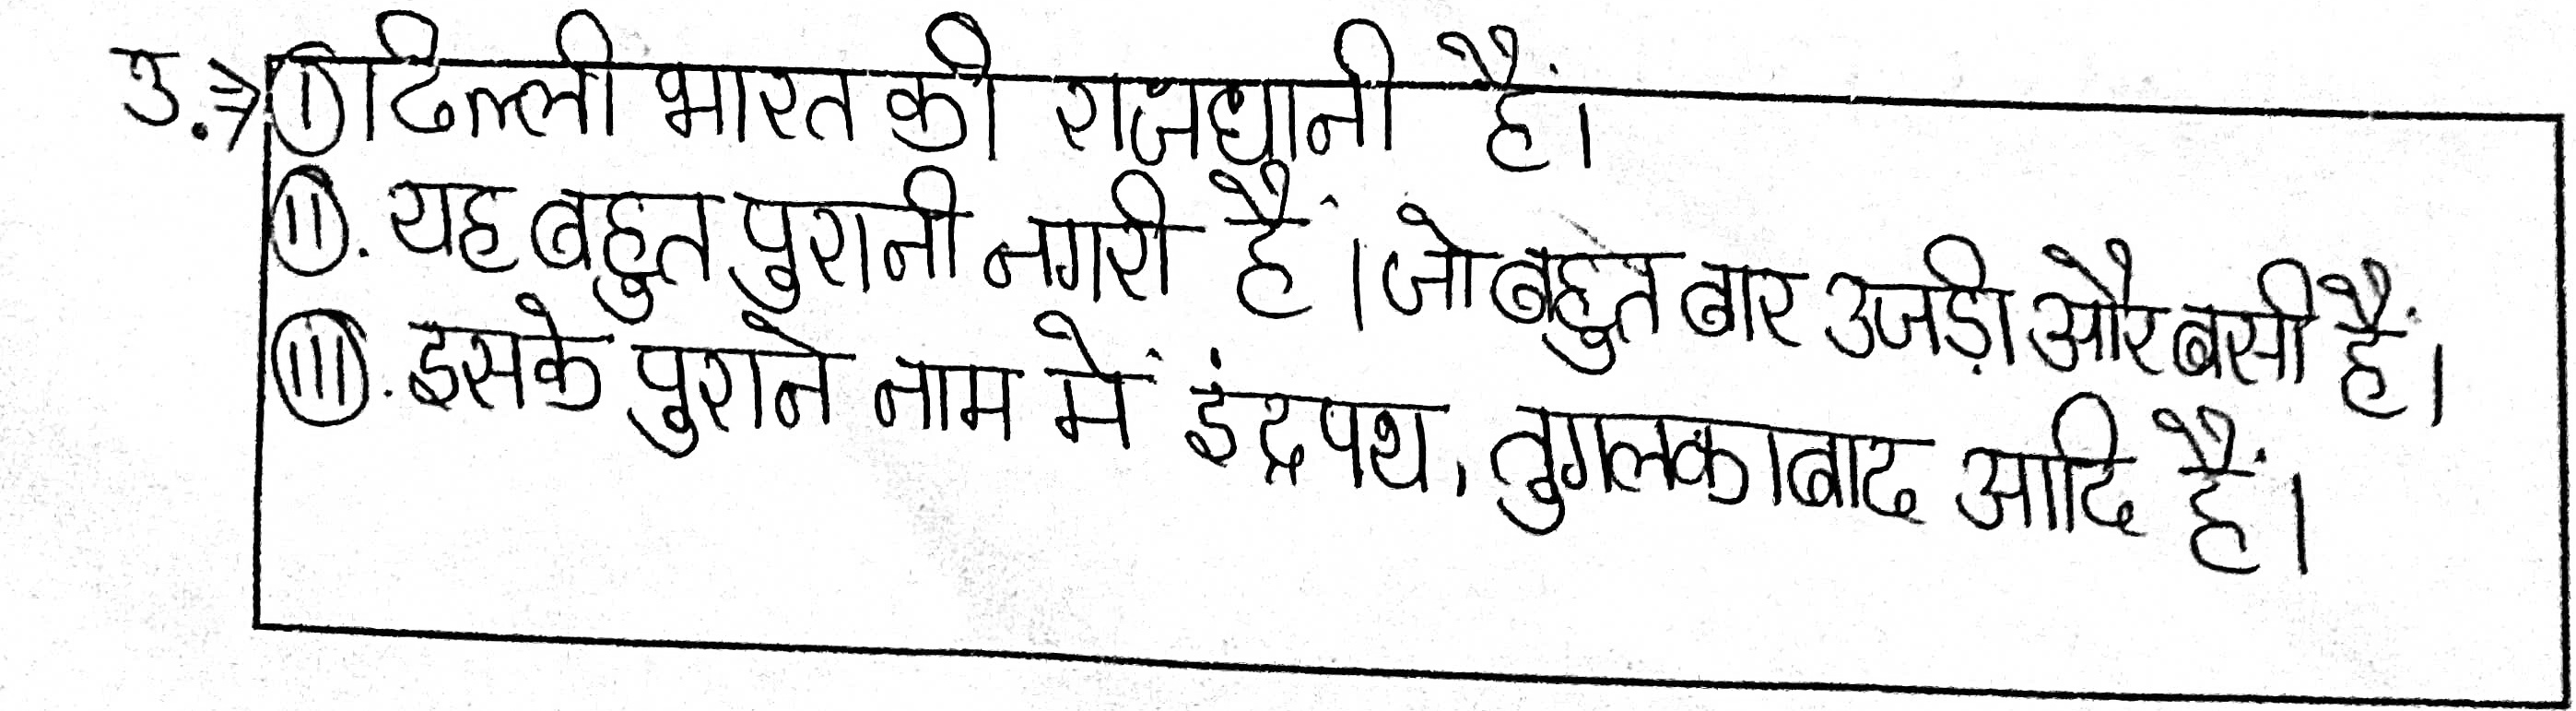 उ.⇒ (I) दिल्ली भारत की राजधानी हैं।
(II). यह बहुत पुरानी नगरी हैं। जो बहुत बार उजड़ी और बसी हैं।
(III). इसके पुराने नाम में इंद्रपथ, तुगलकाबाद आदि हैं।